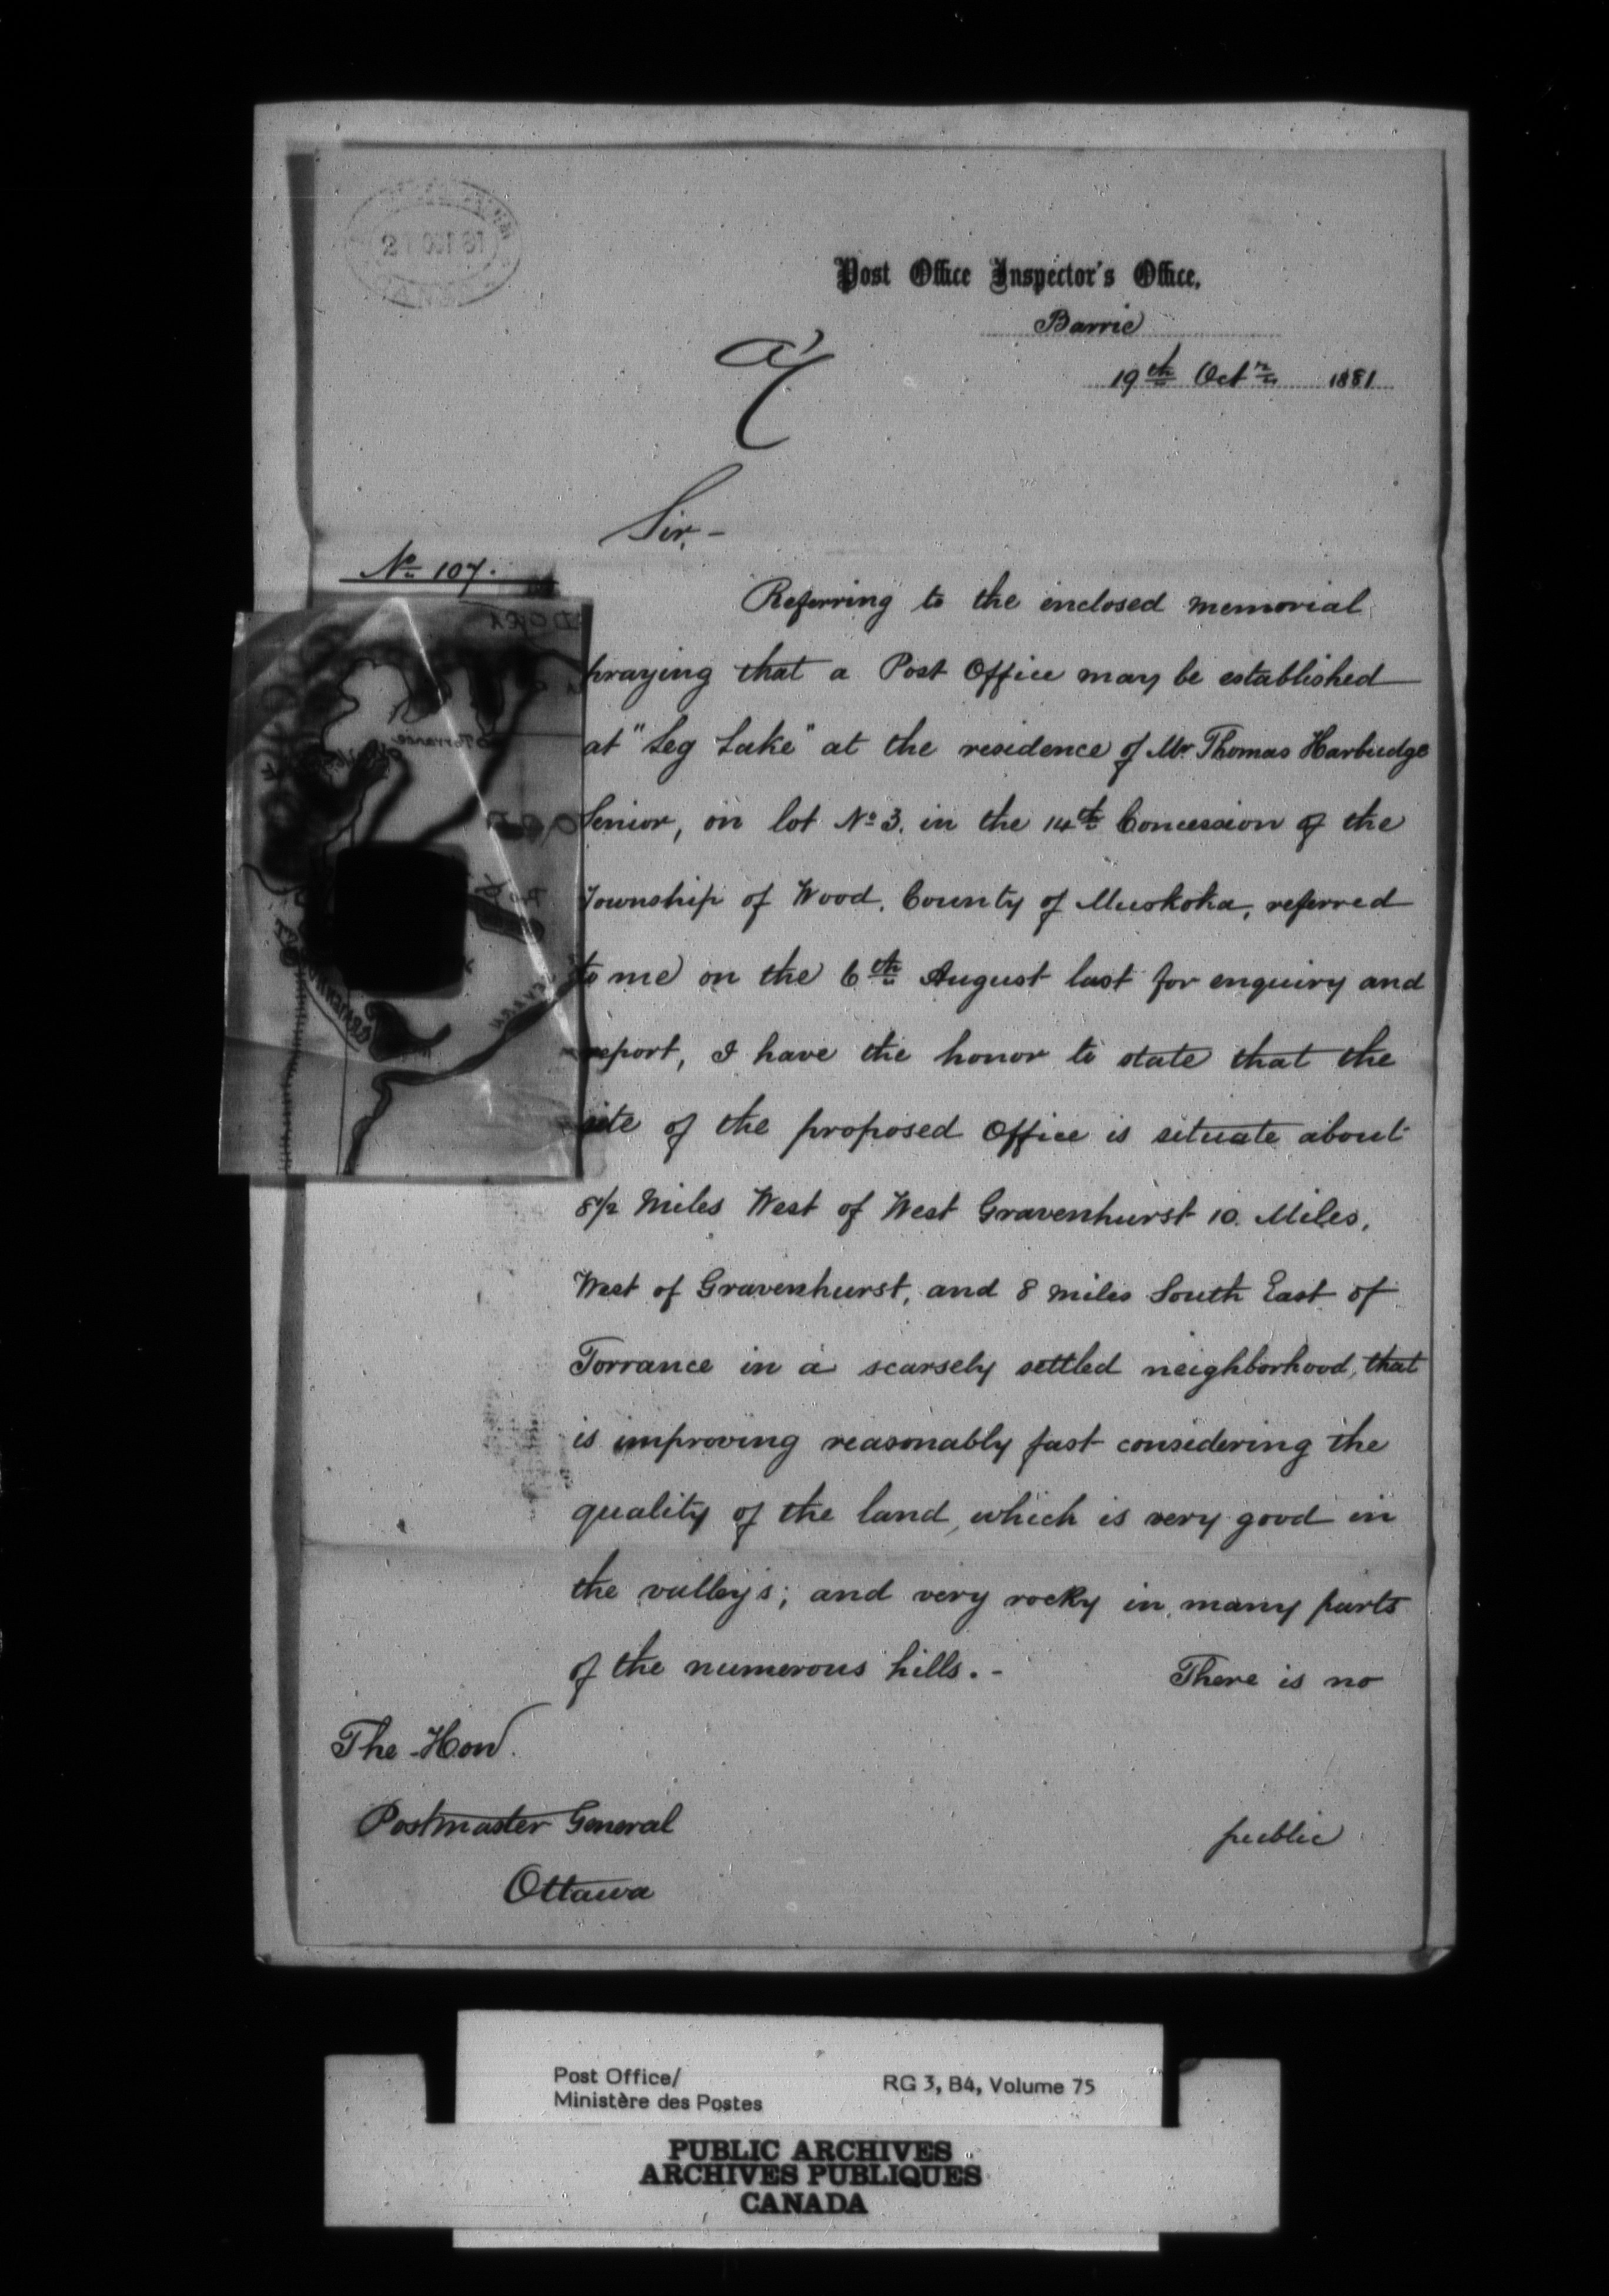 21 OCT 81
Post Office Inspector's Office,
Barrie
19th Octr 1881
Sir,-
No 107.
Referring to the enclosed memorial
praying that a Post Office may be established
at "Leg Lake" at the residence of Mr Thomas Harbudge
Senior, on lot No 3. in the 14th Concession of the
Township of Wood, County of Muskoka, referred
to me on the 6th August last for enquiry and
report, I have the honor to state that the
site of the proposed Office is situate about
8 1/2 Miles West of West Gravenhurst 10 Miles,
West of Gravenhurst, and 8 miles South East of
Torrance in a scarsely settled neighborhood, that
is improving reasonably fast considering the
quality of the land, which is very good in
the valley's; and very rocky in many parts
of the numerous hills.- There is no
The Hon.
Postmaster General
Ottawa
public
Torrance
Post Office/
Ministère des Postes
RG 3, B4, Volume 75
PUBLIC ARCHIVES
ARCHIVES PUBLIQUES
CANADA